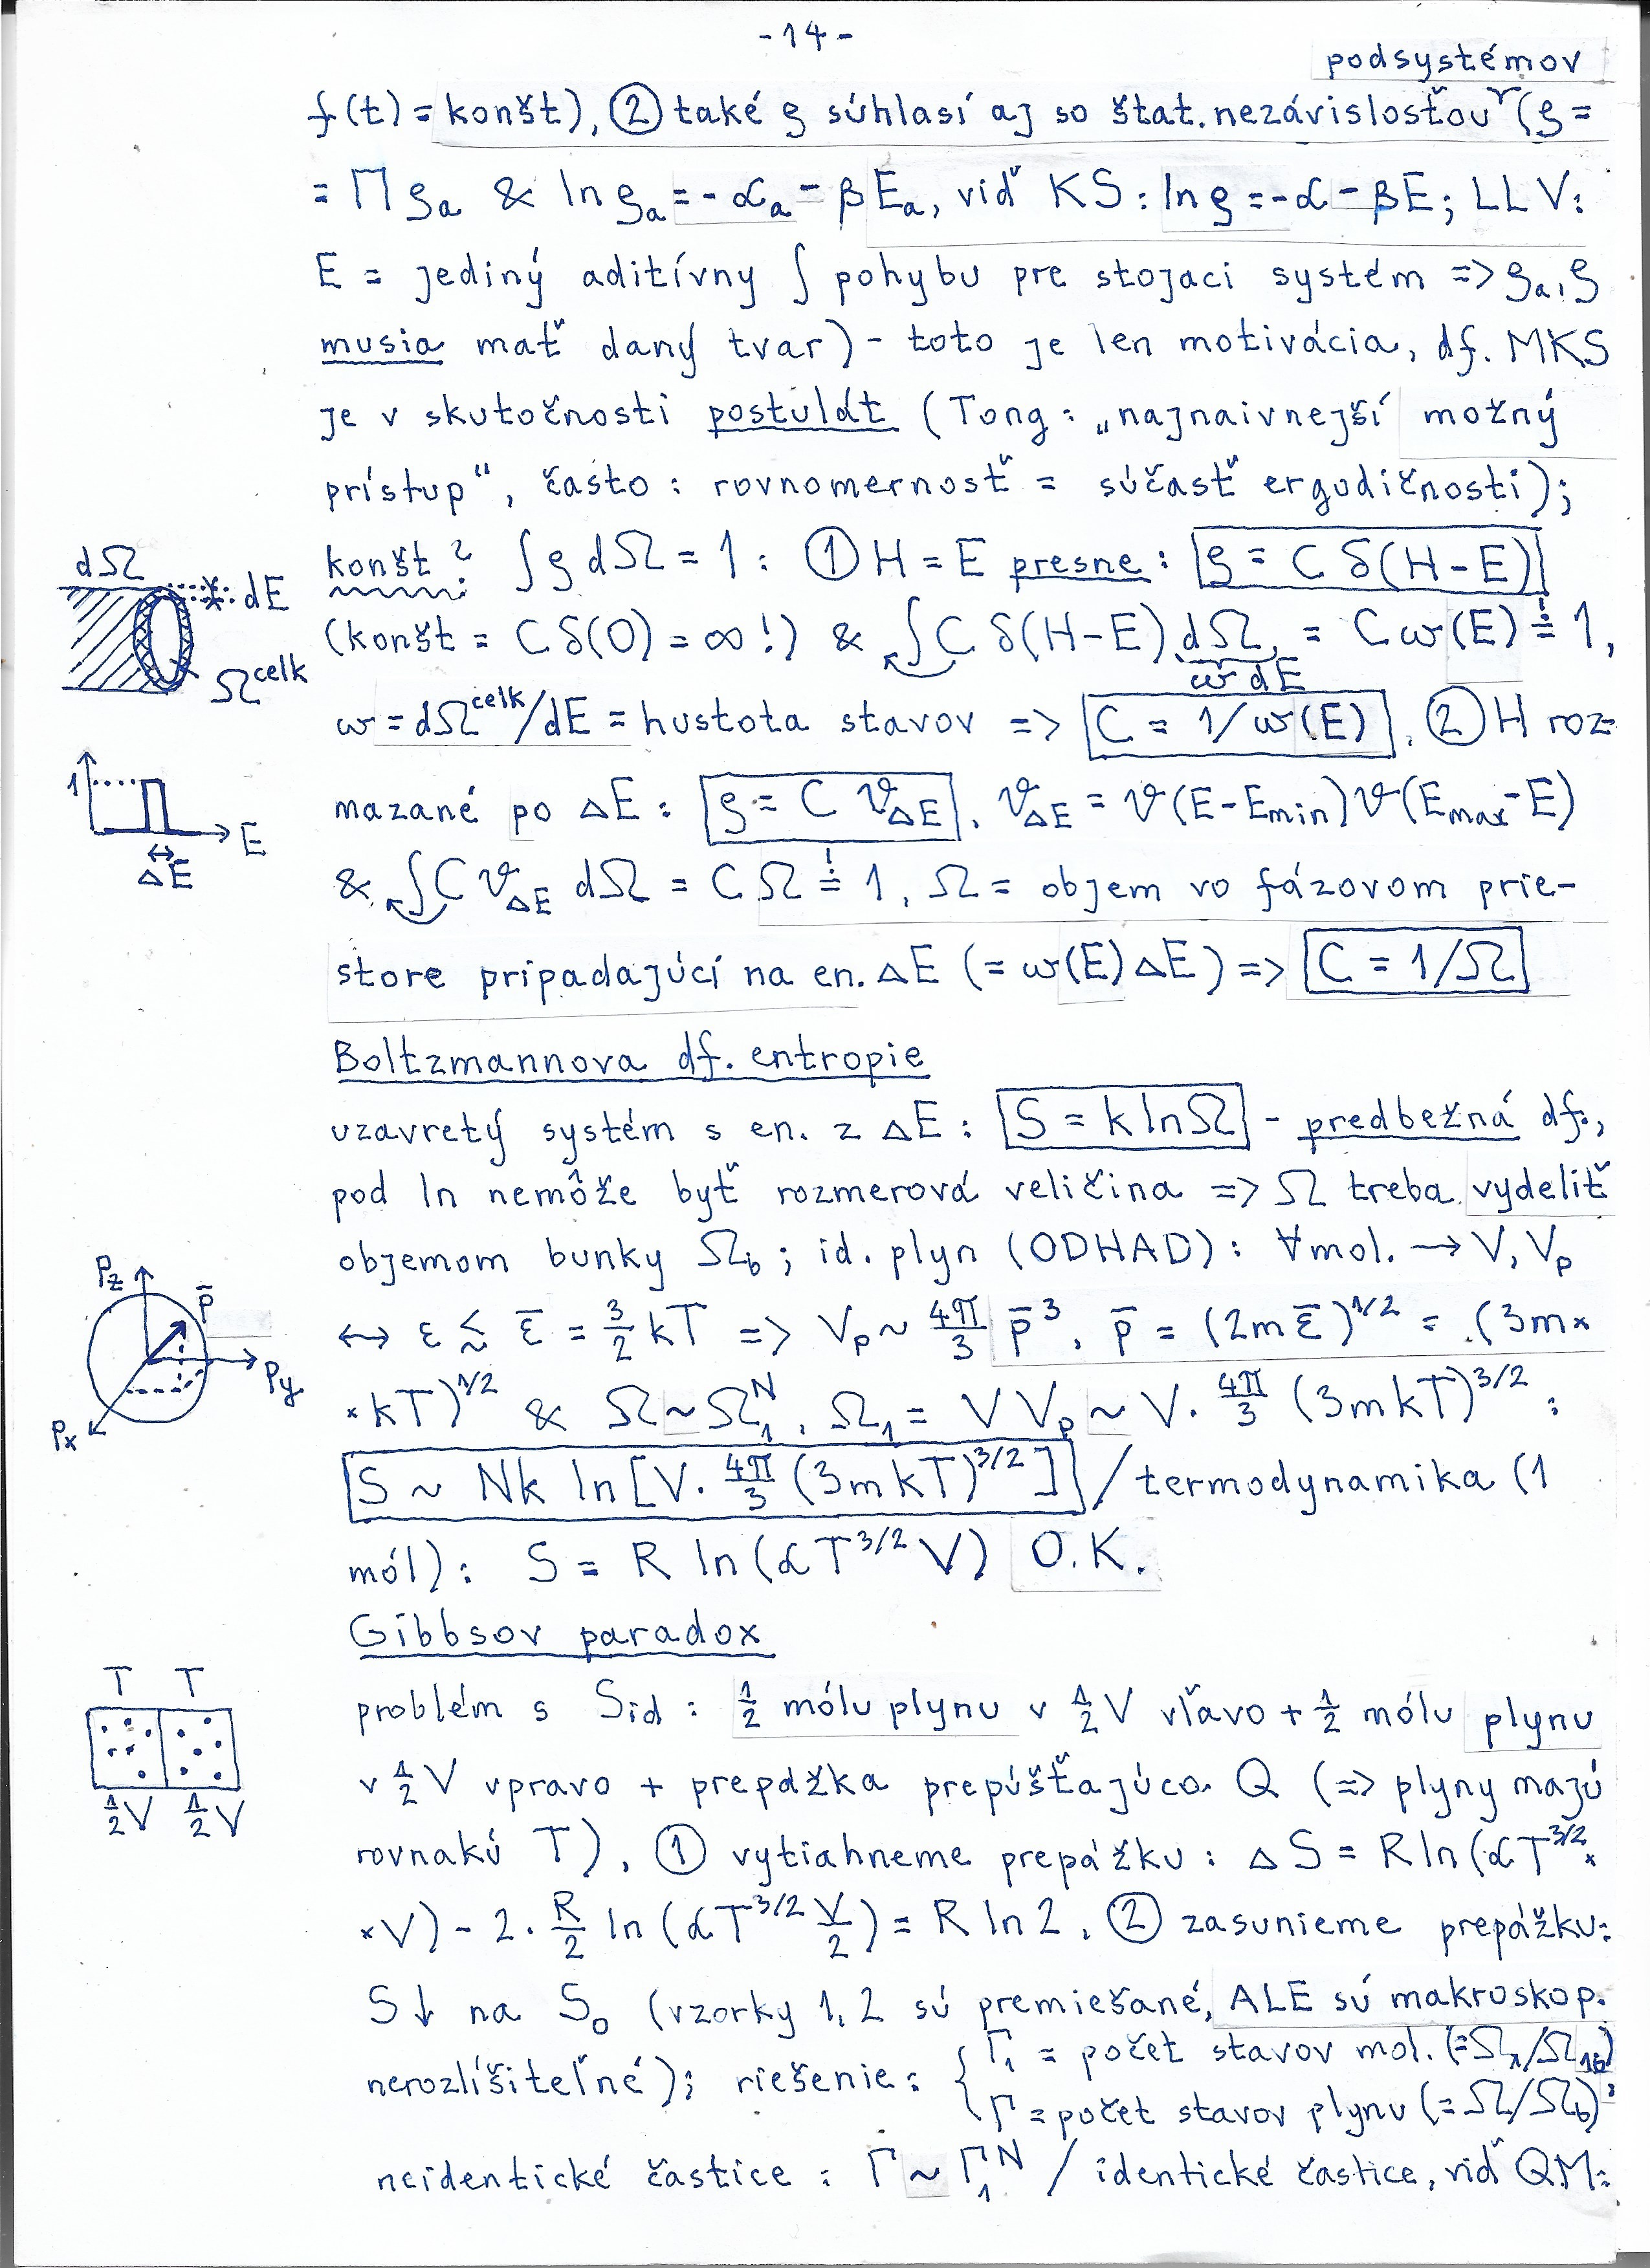 -14-
podsystémov
f(t) = konšt), ② také ϱ súhlasí aj so štat. nezávislosťou (ϱ =
= Π ϱₐ & ln ϱₐ = -αₐ - βEₐ, viď KS: ln ϱ = -α - βE; LL V:
E = jediný aditívny ∫ pohybu pre stojaci systém => ϱₐ, ϱ
musia mať daný tvar) - toto je len motivácia, df. MKS
je v skutočnosti postulát (Tong: „najnaivnejší možný
prístup“, často: rovnomernosť = súčasť ergodičnosti);
konšt ? ∫ϱ dΩ = 1: ① H = E presne: ϱ = C δ(H-E)
(konšt = C δ(0) = ∞!) & ∫C δ(H-E) dΩ = C ω(E) ≐! 1,
ω dE
ω = dΩ^celk/dE = hustota stavov => C = 1/ω(E). ② H roz-
mazané po ΔE: ϱ = C ϑ_ΔE, ϑ_ΔE = ϑ(E-E_min)ϑ(E_max-E)
& ∫C ϑ_ΔE dΩ = C Ω ≐! 1, Ω = objem vo fázovom prie-
store pripadajúcí na en. ΔE (= ω(E)ΔE) => C = 1/Ω
dΩ
dE
Ω^celk
1
E
ΔE
Boltzmannova df. entropie
uzavretý systém s en. z ΔE: S = k ln Ω - predbežná df.,
pod ln nemôže byť rozmerová veličina => Ω treba vydeliť
objemom bunky Ω_b; id. plyn (ODHAD): ∀mol. → V, V_p
↔ ε ≲ ε̄ = 3/2 kT => V_p ~ 4π/3 p̄³, p̄ = (2mε̄)^1/2 = (3m×
×kT)^1/2 & Ω ~ Ω₁^N, Ω₁ = V V_p ~ V. 4π/3 (3mkT)^3/2:
S ~ Nk ln[V. 4π/3 (3mkT)^3/2] / termodynamika (1
mól): S = R ln(αT^3/2 V) O.K.
p_z
p̄
p_y
p_x
Gibbsov paradox
problém s S_id: 1/2 mólu plynu v 1/2 V vľavo + 1/2 mólu plynu
v 1/2 V vpravo + prepážka prepúšťajúca Q (=> plyny majú
rovnakú T), ① vytiahneme prepážku: ΔS = R ln(αT^3/2 ×
×V) - 2. R/2 ln(αT^3/2 V/2) = R ln 2, ② zasunieme prepážku:
S↓ na S₀ (vzorky 1, 2 sú premiešané, ALE sú makroskop.
nerozlíšiteľné); riešenie: { Γ₁ = počet stavov mol. (=Ω₁/Ω_1b)
Γ = počet stavov plynu (=Ω/Ω_b):
neidentické častice: Γ ~ Γ₁^N / identické častice, viď QM:
T T
1/2 V 1/2 V